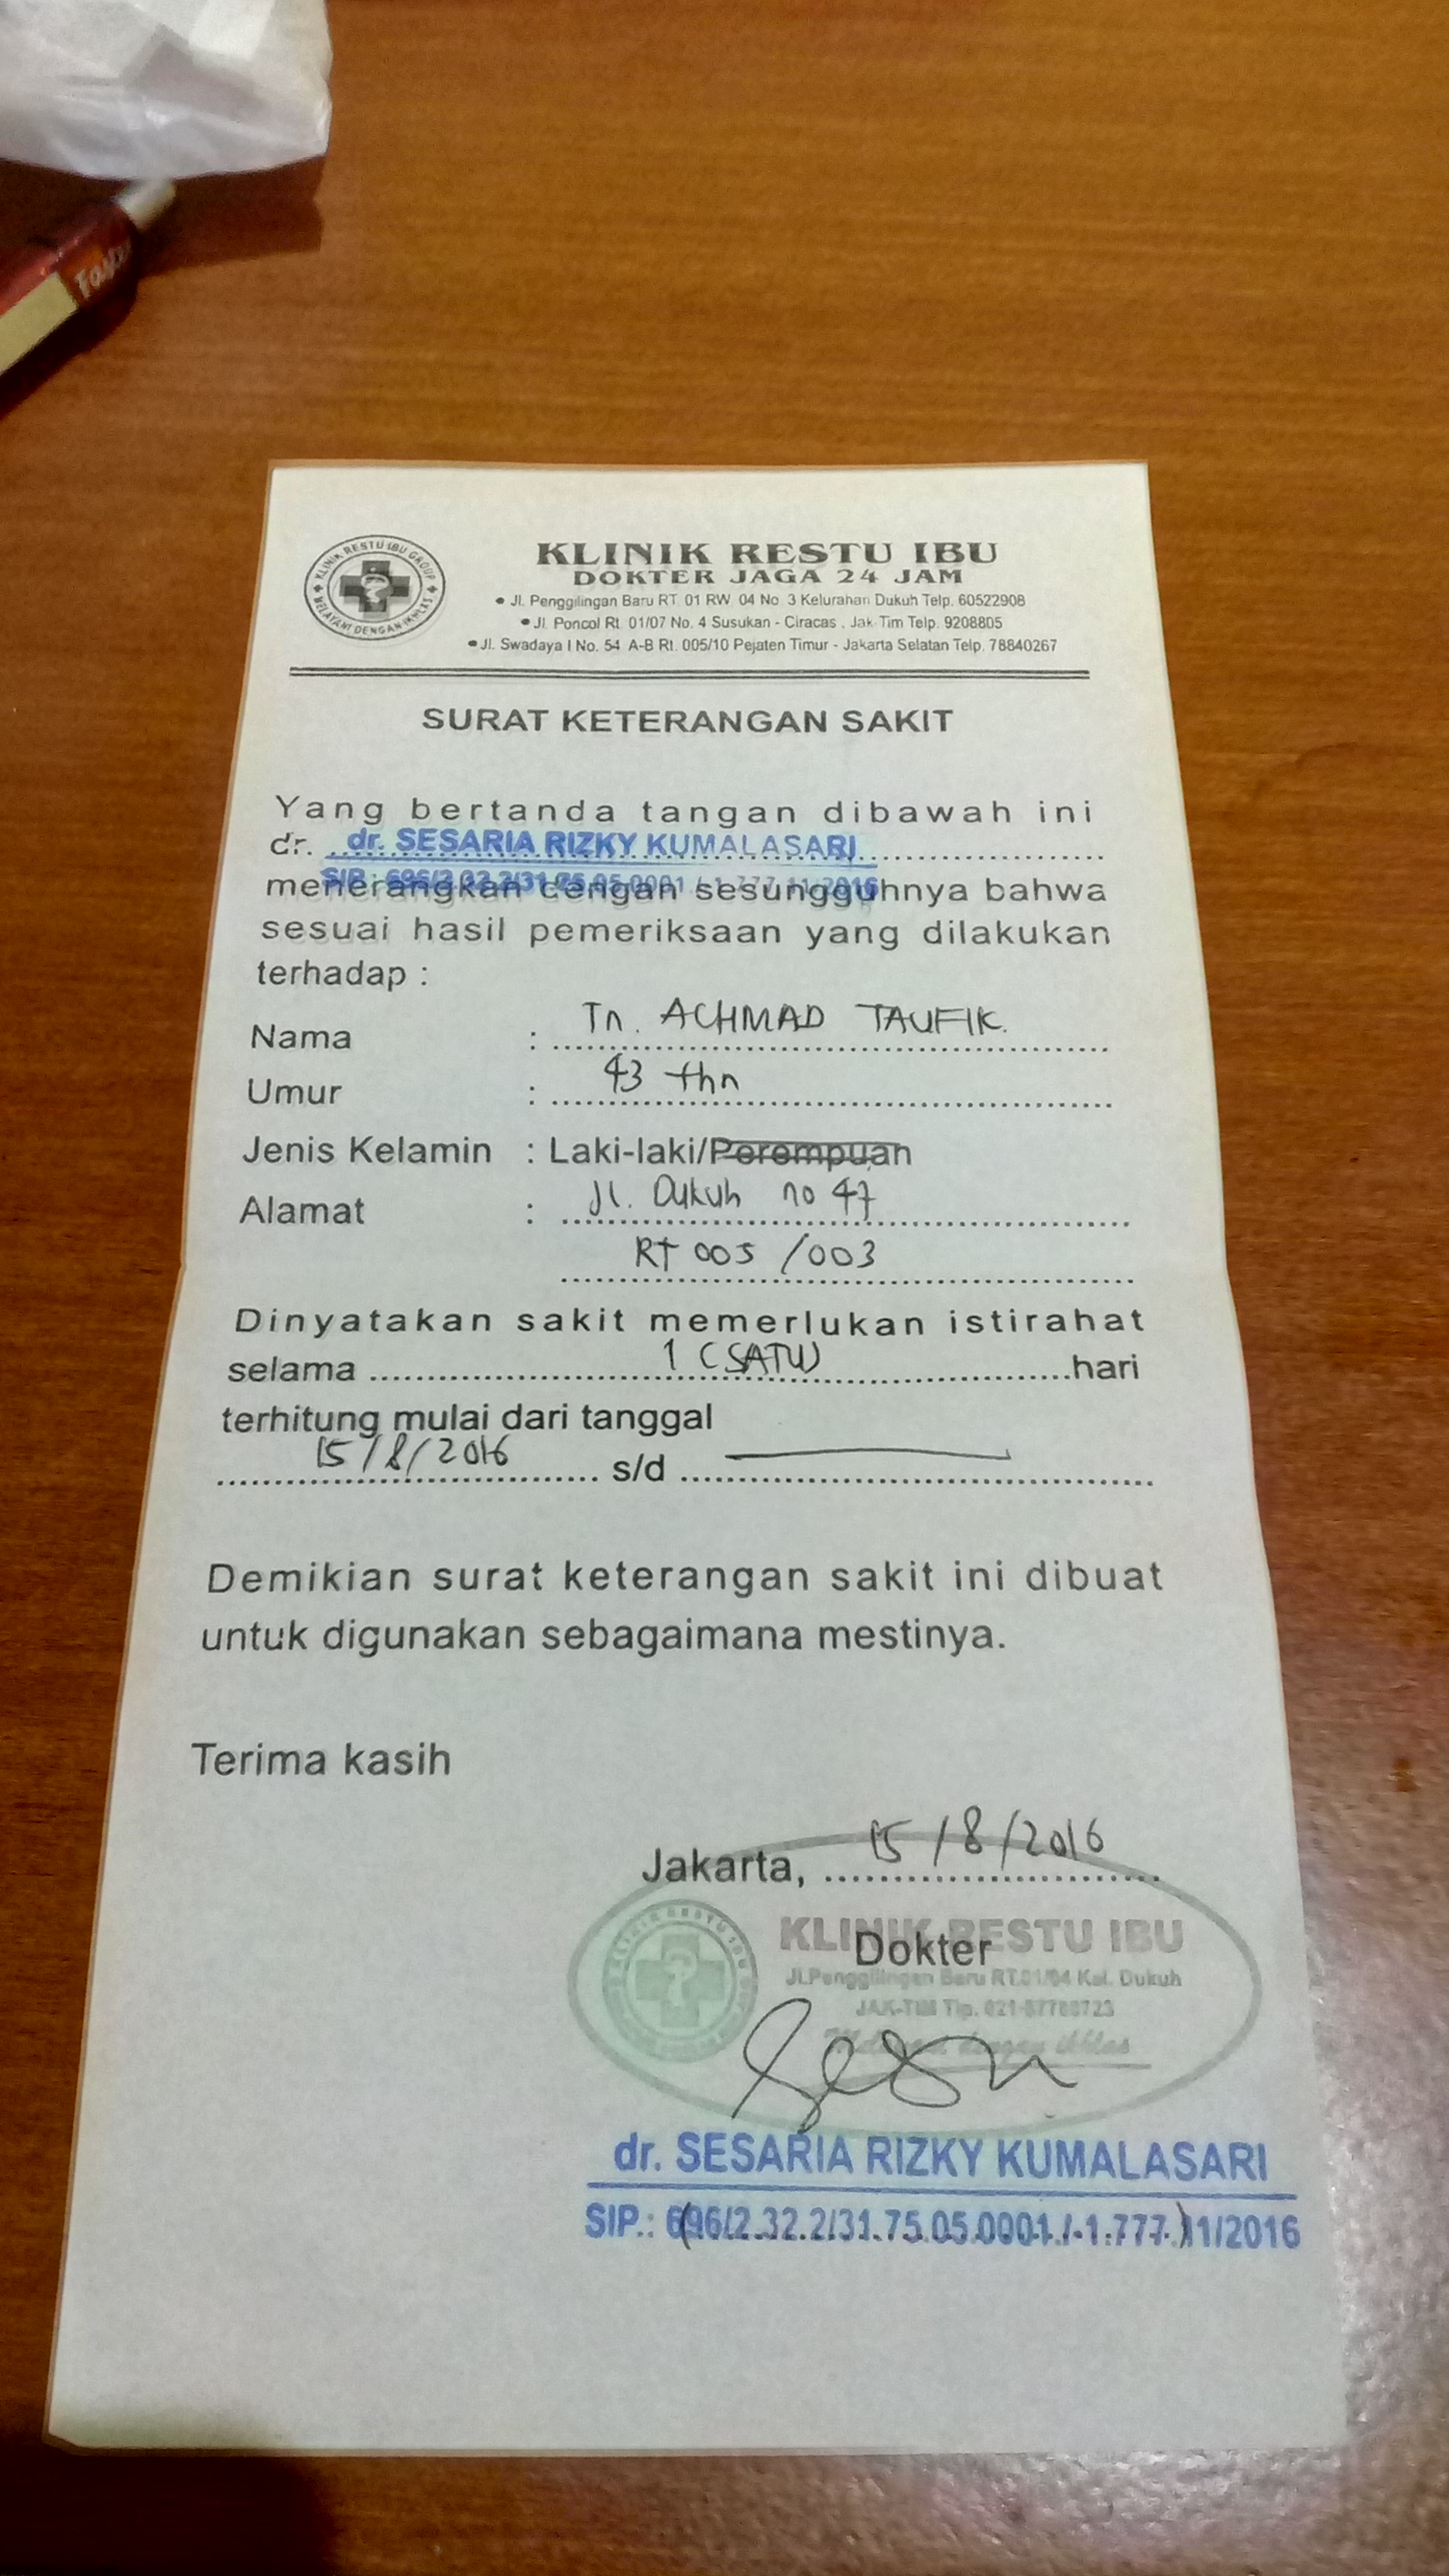 KLINIK RESTU IBU GROUP
MELAYANI DENGAN IKHLAS
KLINIK RESTU IBU
DOKTER JAGA 24 JAM
• Jl. Penggilingan Baru RT. 01 RW. 04 No. 3 Kelurahan Dukuh Telp. 60522908
• Jl. Poncol Rt. 01/07 No. 4 Susukan - Ciracas . Jak-Tim Telp. 9208805
• Jl. Swadaya I No. 54 A-B Rt. 005/10 Pejaten Timur - Jakarta Selatan Telp. 78840267
SURAT KETERANGAN SAKIT
Yang bertanda tangan dibawah ini
dr. dr. SESARIA RIZKY KUMALASARI
SIP.: 696/2.32.2/31.75.05.0001 /-1.777.11/2016
menerangkan dengan sesungguhnya bahwa
sesuai hasil pemeriksaan yang dilakukan
terhadap :
Nama : Tn. ACHMAD TAUFIK.
Umur : 43 thn
Jenis Kelamin : Laki-laki/Perempuan
Alamat : Jl. Dukuh no 47
RT 005 /003
Dinyatakan sakit memerlukan istirahat
selama 1 (SATU) hari
terhitung mulai dari tanggal
15/8/2016 s/d
Demikian surat keterangan sakit ini dibuat
untuk digunakan sebagaimana mestinya.
Terima kasih
Jakarta, 15/8/2016
KLINIK RESTU IBU
Dokter
Jl.Penggilingan Baru RT.01/04 Kel. Dukuh
JAK-TIM Tlp.
dr. SESARIA RIZKY KUMALASARI
SIP.: 696/2.32.2/31.75.05.0001./-1.777.11/2016